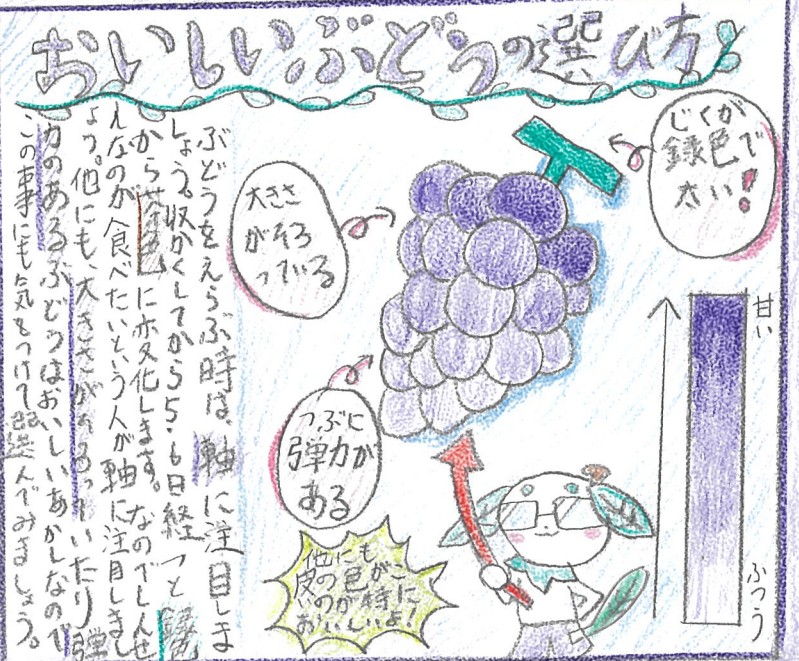 おいしいぶどうの選び方
じくが
緑色で
太い!
大きさ
がそろ
っている
つぶに
弾力が
ある
甘い
ふつう
他にも
皮の色がこ
いのが特に
おいしいよ!
ぶどうをえらぶ時は、軸に注目しま
しょう。収かくしてから5・6日経つと緑色
から茶色に変化します。なのでしんせ
んなのが食べたいという人が軸に注目しまし
ょう。他にも、大きさがそろっていたり弾
力のあるぶどうはおいしいあかしなので
この事にも気をつけて選んでみましょう。